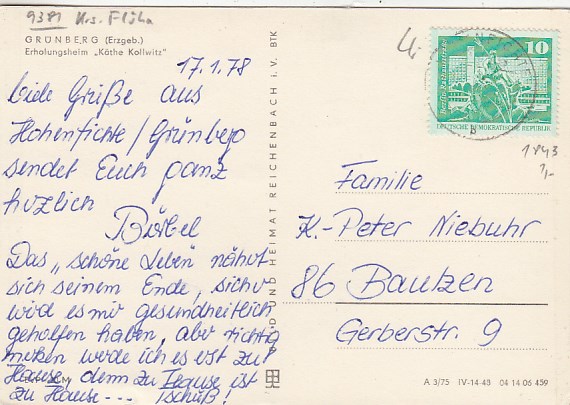 9381 Krs. Flöha
GRÜNBERG (Erzgeb.)
Erholungsheim „Käthe Kollwitz"
17.1.78
Viele Grüße aus
Hohenfichte/Grünberg
sendet Euch ganz
herzlich
Bärbel
Das „schöne Leben" nähert
sich seinem Ende, sicher
wird es mir gesundheitlich
geholfen haben, aber richtig
merken werde ich es erst zu
Hause, denn zu Hause ist
zu Hause --- Tschüß!
BILD UND HEIMAT REICHENBACH i. V. BTK
Berlin, Rathausstraße
10
DEUTSCHE DEMOKRATISCHE REPUBLIK
b
1843
Familie
K.-Peter Niebuhr
86 Bautzen
Gerberstr. 9
A 3/75 IV-14-48 04 14 06 459